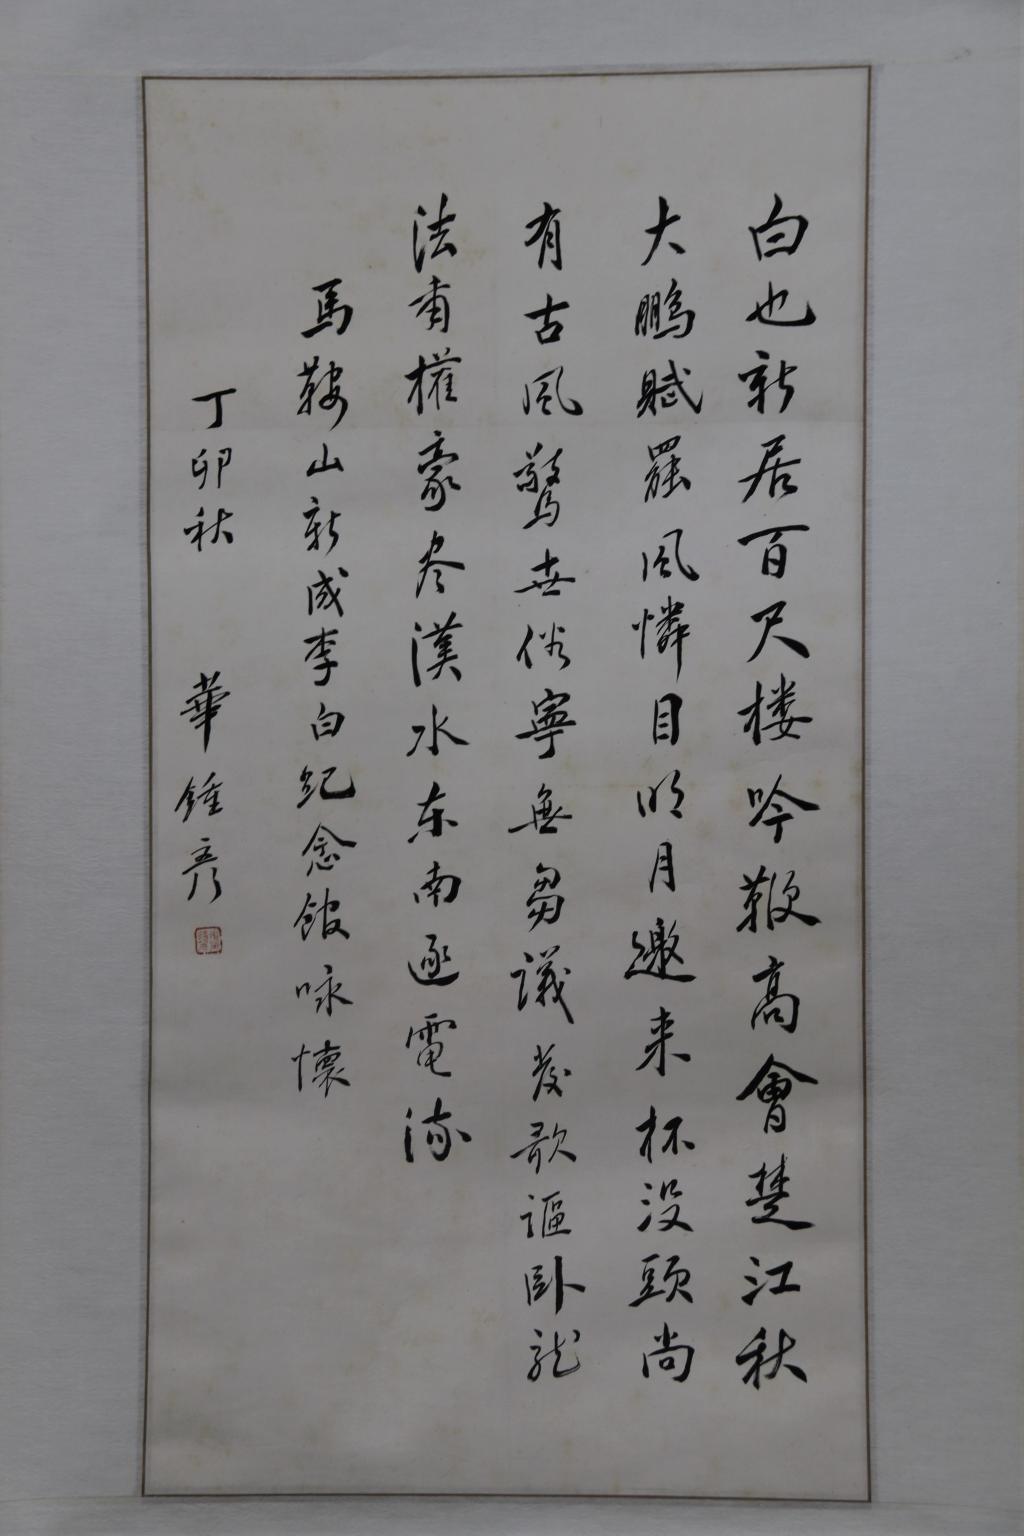 白也新居百尺楼吟鞭高會楚江秋
大鵬賦罷風憐目明月邀来杯没頭尚
有古風驚世俗寧無芻議發歌謳卧龍
法權豪尽漢水东南逐電流
馬鞍山新成李白紀念館咏懷
丁卯秋 華鍾彦